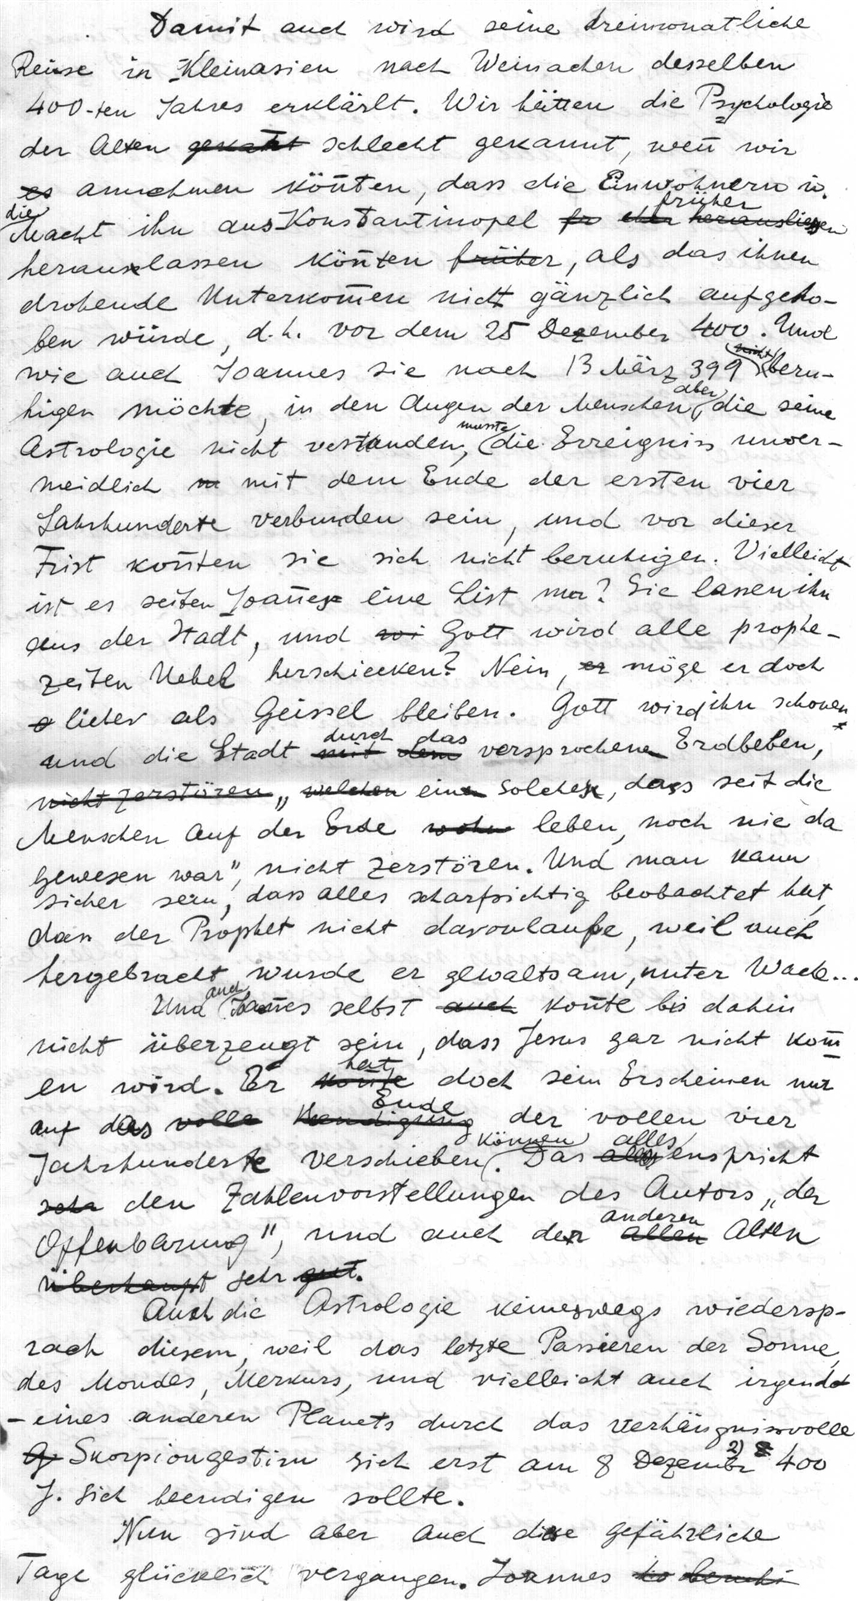 Damit auch wird seine dreimonatliche
Reise in Kleinasien nach Weinachen desselben
400-ten Jahres erklärlt. Wir hätten die Psychologie
der Alten gekannt schlecht gekannt, wen̄ wir
es annehmen kön̄ten, dass die Einwohnern in
die früher
Macht ihn aus Konstantinopel eher herausliessen
herauslassen kön̄ten früher, als das ihnen
drohende Unterkom̄en nicht gänzlich aufgeho-
ben würde, d.h. vor dem 25 Dezember 400. Und
wie auch Joannes sie nach 13 März 399 (nicht) beru-
higen möchte, in den Augen der Menschen, aber die seine
Astrologie nicht verstanden, musste die Erreigniss unver-
meidlich mit dem Ende der ersten vier
Jahrhunderte verbunden sein, und vor dieser
Frist kon̄ten sie sich nicht beruhigen. Vielleicht
ist es seiten Joan̄es eine List nur? Sie lassen ihn
aus der Stadt, und wi Gott wird alle prophe-
zeiten Uebel herschiecken? Nein, er möge er doch
lieber als Geissel bleiben. Gott wird ihn schonen
durch das
und die Stadt mit dem versprochene Erdbeben,
nicht zerstören „welchen eine solches, dass seit die
Menschen auf der Erde wohn leben, noch nie da
gewesen war", nicht zerstören. Und man kann
sicher sein, dass alles scharfsichtig beobachtet hat,
dass der Prophet nicht davonlaufe, weil auch
hergebracht wurde er gewaltsam, unter Wache...
Und auch Joan̄es selbst auch kon̄te bis dahin
nicht überzeugt sein, dass Jesus gar nicht kom̄
hat
en wird. Er konte doch sein Erscheinen nur
Ende
auf das volle Beendigung der vollen vier
können alles
Jahrhunderte verschieben. Das alles enspricht
sehr den Zahlenvorstellungen des Autors „der
anderen
Offenbarung", und auch der allen Alten
überhaupt sehr gut.
Auch die Astrologie keineswegs wiedersp-
rach diesem, weil das letzte Passieren der Sonne,
des Mondes, Merkurs, und vielleicht auch irgend
-eines anderen Planets durch das verhängnissvolle
Skorpiongestirn sich erst am 8 Dezember 2) 400
J. sich beendigen sollte.
Nun sind aber auch diese gefährliche
Tage glücklich vergangen. Joannes